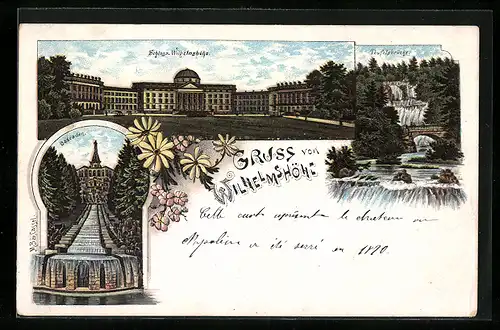 Schloss Wilhelmshöhe.
Teufelsbrücke.
Cascaden.
GRUSS VON
WILHELMSHÖHE
Cette carte représente le chateau ou
Napoléon a été serré en 1870.